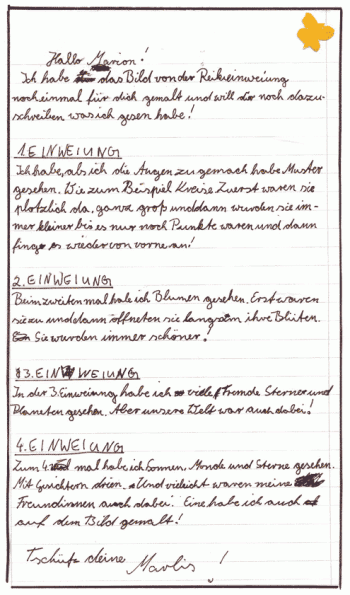 Hallo Marion!
Ich habe das Bild von der Reikeinweiung
noch einmal für dich gemalt und will dir noch dazu-
schreiben was ich gesen habe!
1. EINWEIUNG
Ich habe, als ich die Augen zu gemach habe Muster
gesehen. Wie zum Beispiel Kreise Zuerst waren sie
plötzlich da, ganz groß und dann wurden sie im-
mer kleiner bis es nur noch Punkte waren und dann
finge es wieder von vorne an!
2. EINWEIUNG
Beim zweiten mal habe ich Blumen gesehen. Erst waren
sie zu und dann öffneten sie langsam ihre Blüten.
Sie wurden immer schöner!
3. EINWEIUNG
In der 3. Einweiung habe ich viele Fremde Sterne und
Planeten gesehen. Aber unsere Welt war auch dabei!
4. EINWEIUNG
Zum 4. mal habe ich Sonnen, Monde und Sterne gesehen.
Mit Gesichtern drien. Und vieleicht waren meine
Freundinnen auch dabei. Eine habe ich auch
auf dem Bild gemalt!
Tschüß deine Marlis!